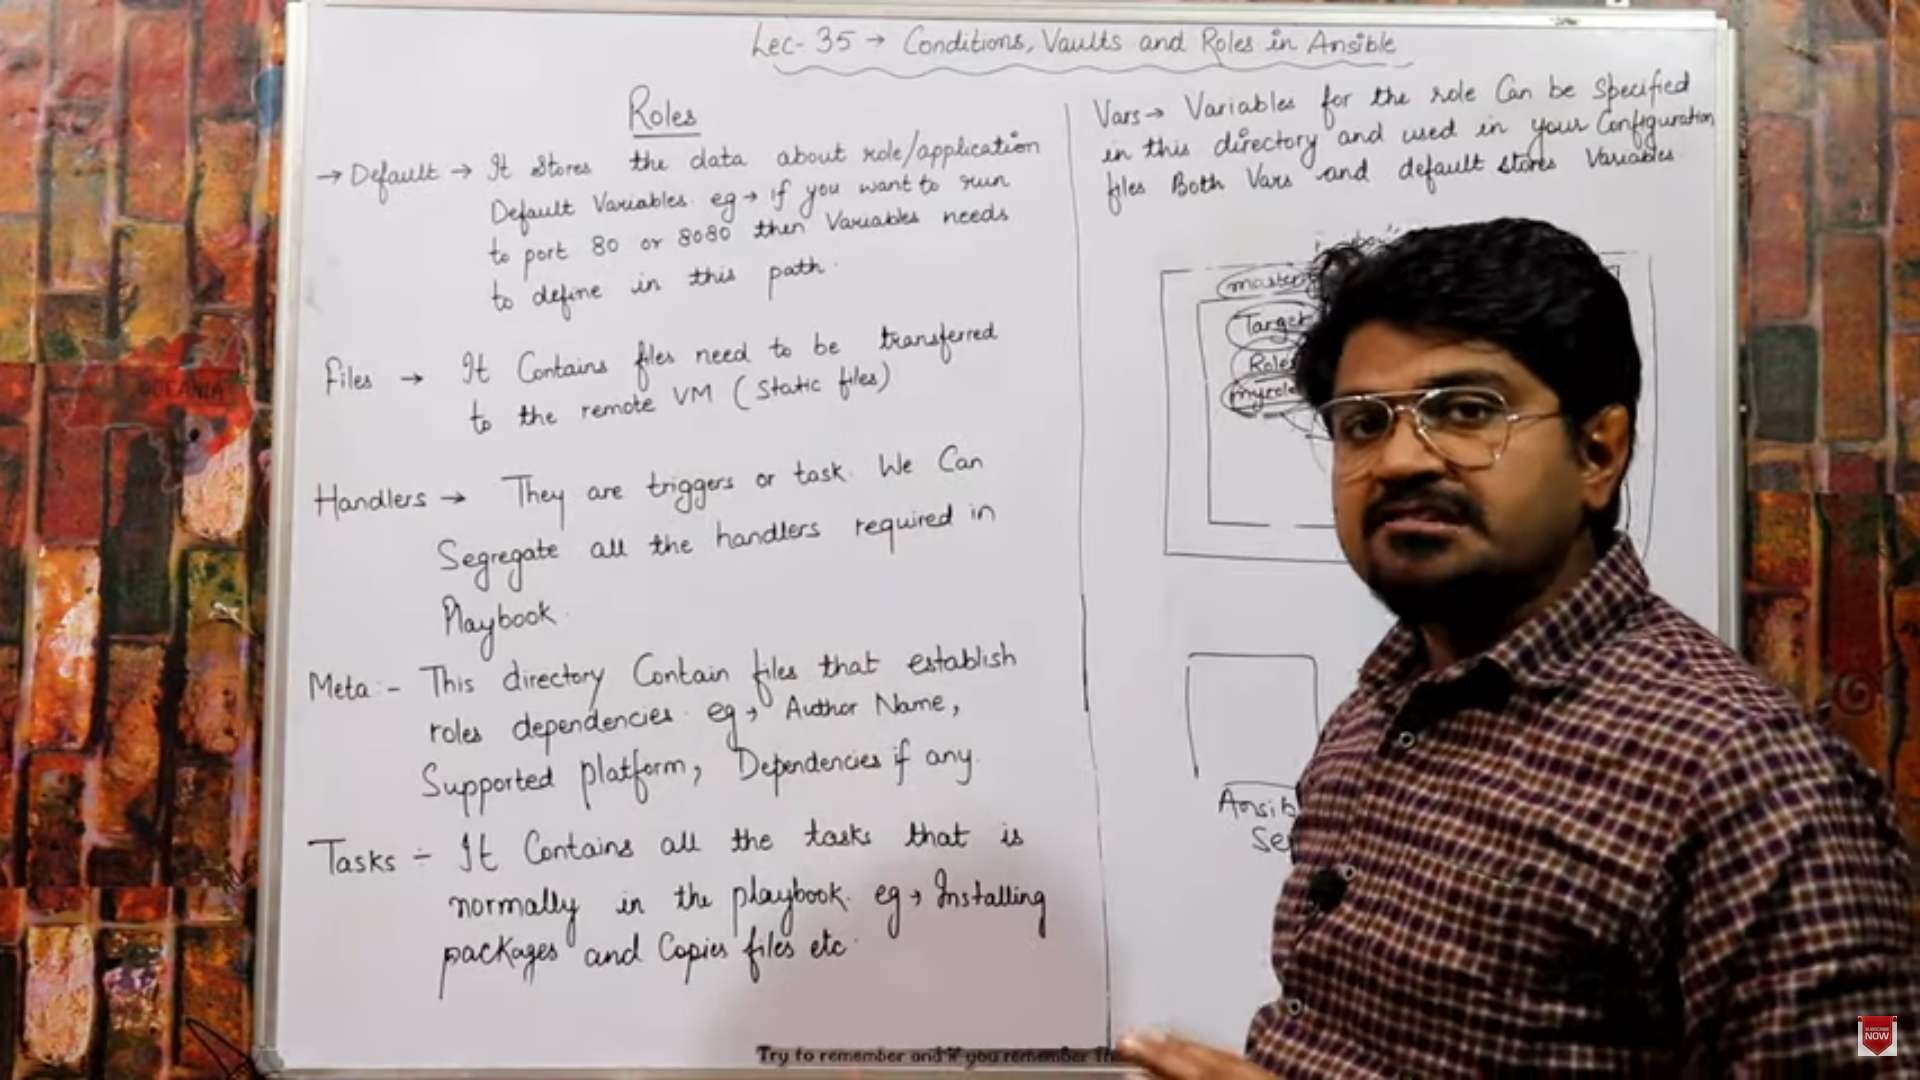 Lec-35 → Conditions, Vaults and Roles in Ansible
Roles
→ Default → It stores the data about role/application
Default Variables. eg → if you want to run
to port 80 or 8080 then Variables needs
to define in this path.
Files → It Contains files need to be transferred
to the remote VM (Static files)
Handlers → They are triggers or task. We Can
Segregate all the handlers required in
Playbook.
Meta :- This directory Contain files that establish
roles dependencies. eg → Author Name,
Supported platform, Dependencies if any.
Tasks ÷ It Contains all the tasks that is
normally in the playbook. eg → Installing
packages and Copies files etc.
Vars → Variables for the role Can be Specified
in this directory and used in your Configuration
files Both Vars and default stores Variables.
master
Target
Roles
myrole
Ansib
Se
Try to remember and if you remember
SUBSCRIBE
NOW